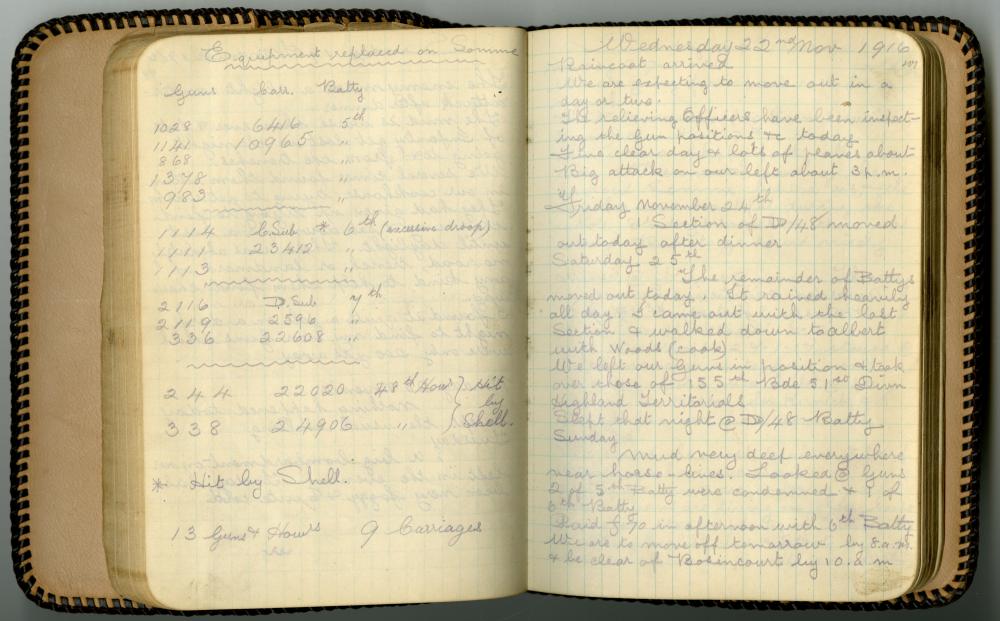 Equipment replaced on Somme
Guns Carr. Batty
1028 6416 5th
1141 10965 "
868 "
1378 "
983 "
1114 C Sub * 6th (excessive droop)
1111 23412 "
1113 "
2116 D. Sub 7th
2119 2596 "
336 22608 "
244 22020 48th How } Hit
by
338 24906 " } Shell.
* Hit by Shell.
13 Guns & Hows 9 Carriages
Wednesday 22nd Nov 1916
Raincoat arrived
We are expecting to move out in a
day or two.
The relieving Officers have been inspect-
ing the Gun positions &c today
Fine clear day & lots of planes about
Big attack on our left about 3 p.m.
Friday November 24th
1 Section of D/48 moved
out today after dinner
Saturday 25th
The remainder of Battys
moved out today. It rained heavily
all day I came out with the last
Section & walked down to Albert
with Woods (cook)
We left our Guns in position & took
over those of 155th Bde 51st Divn
Highland Territorials
Slept that night @ D/48 Batty
Sunday
Mud very deep everywhere
near horse-lines. Looked @ Guns
2 of 5th Batty were condemned & 1 of
6th Batty
Paid in afternoon with 6th Batty
We are to move off tomorrow by 8.a.m.
& be clear of Bosincourt by 10.a.m